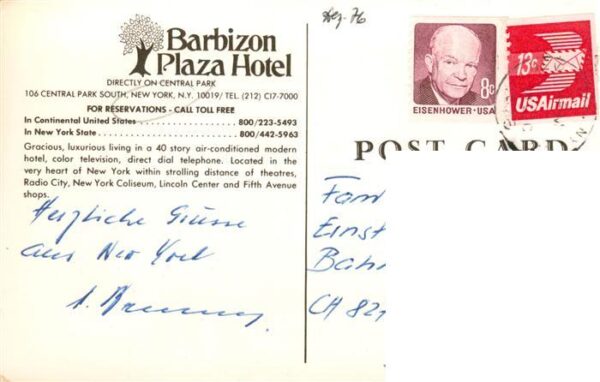 Barbizon
Plaza Hotel
DIRECTLY ON CENTRAL PARK
106 CENTRAL PARK SOUTH, NEW YORK, N.Y. 10019/ TEL. (212) CI7-7000
FOR RESERVATIONS - CALL TOLL FREE
In Continental United States 800/223-5493
In New York State 800/442-5963
Gracious, luxurious living in a 40 story air-conditioned modern
hotel, color television, direct dial telephone. Located in the
very heart of New York within strolling distance of theatres,
Radio City, New York Coliseum, Lincoln Center and Fifth Avenue
shops.
Herzliche Grüsse
aus New York
Dez. 76
8c
EISENHOWER·USA
13c
USAirmail
POST CARD
Fam
Ernst
Bahn
CH 82